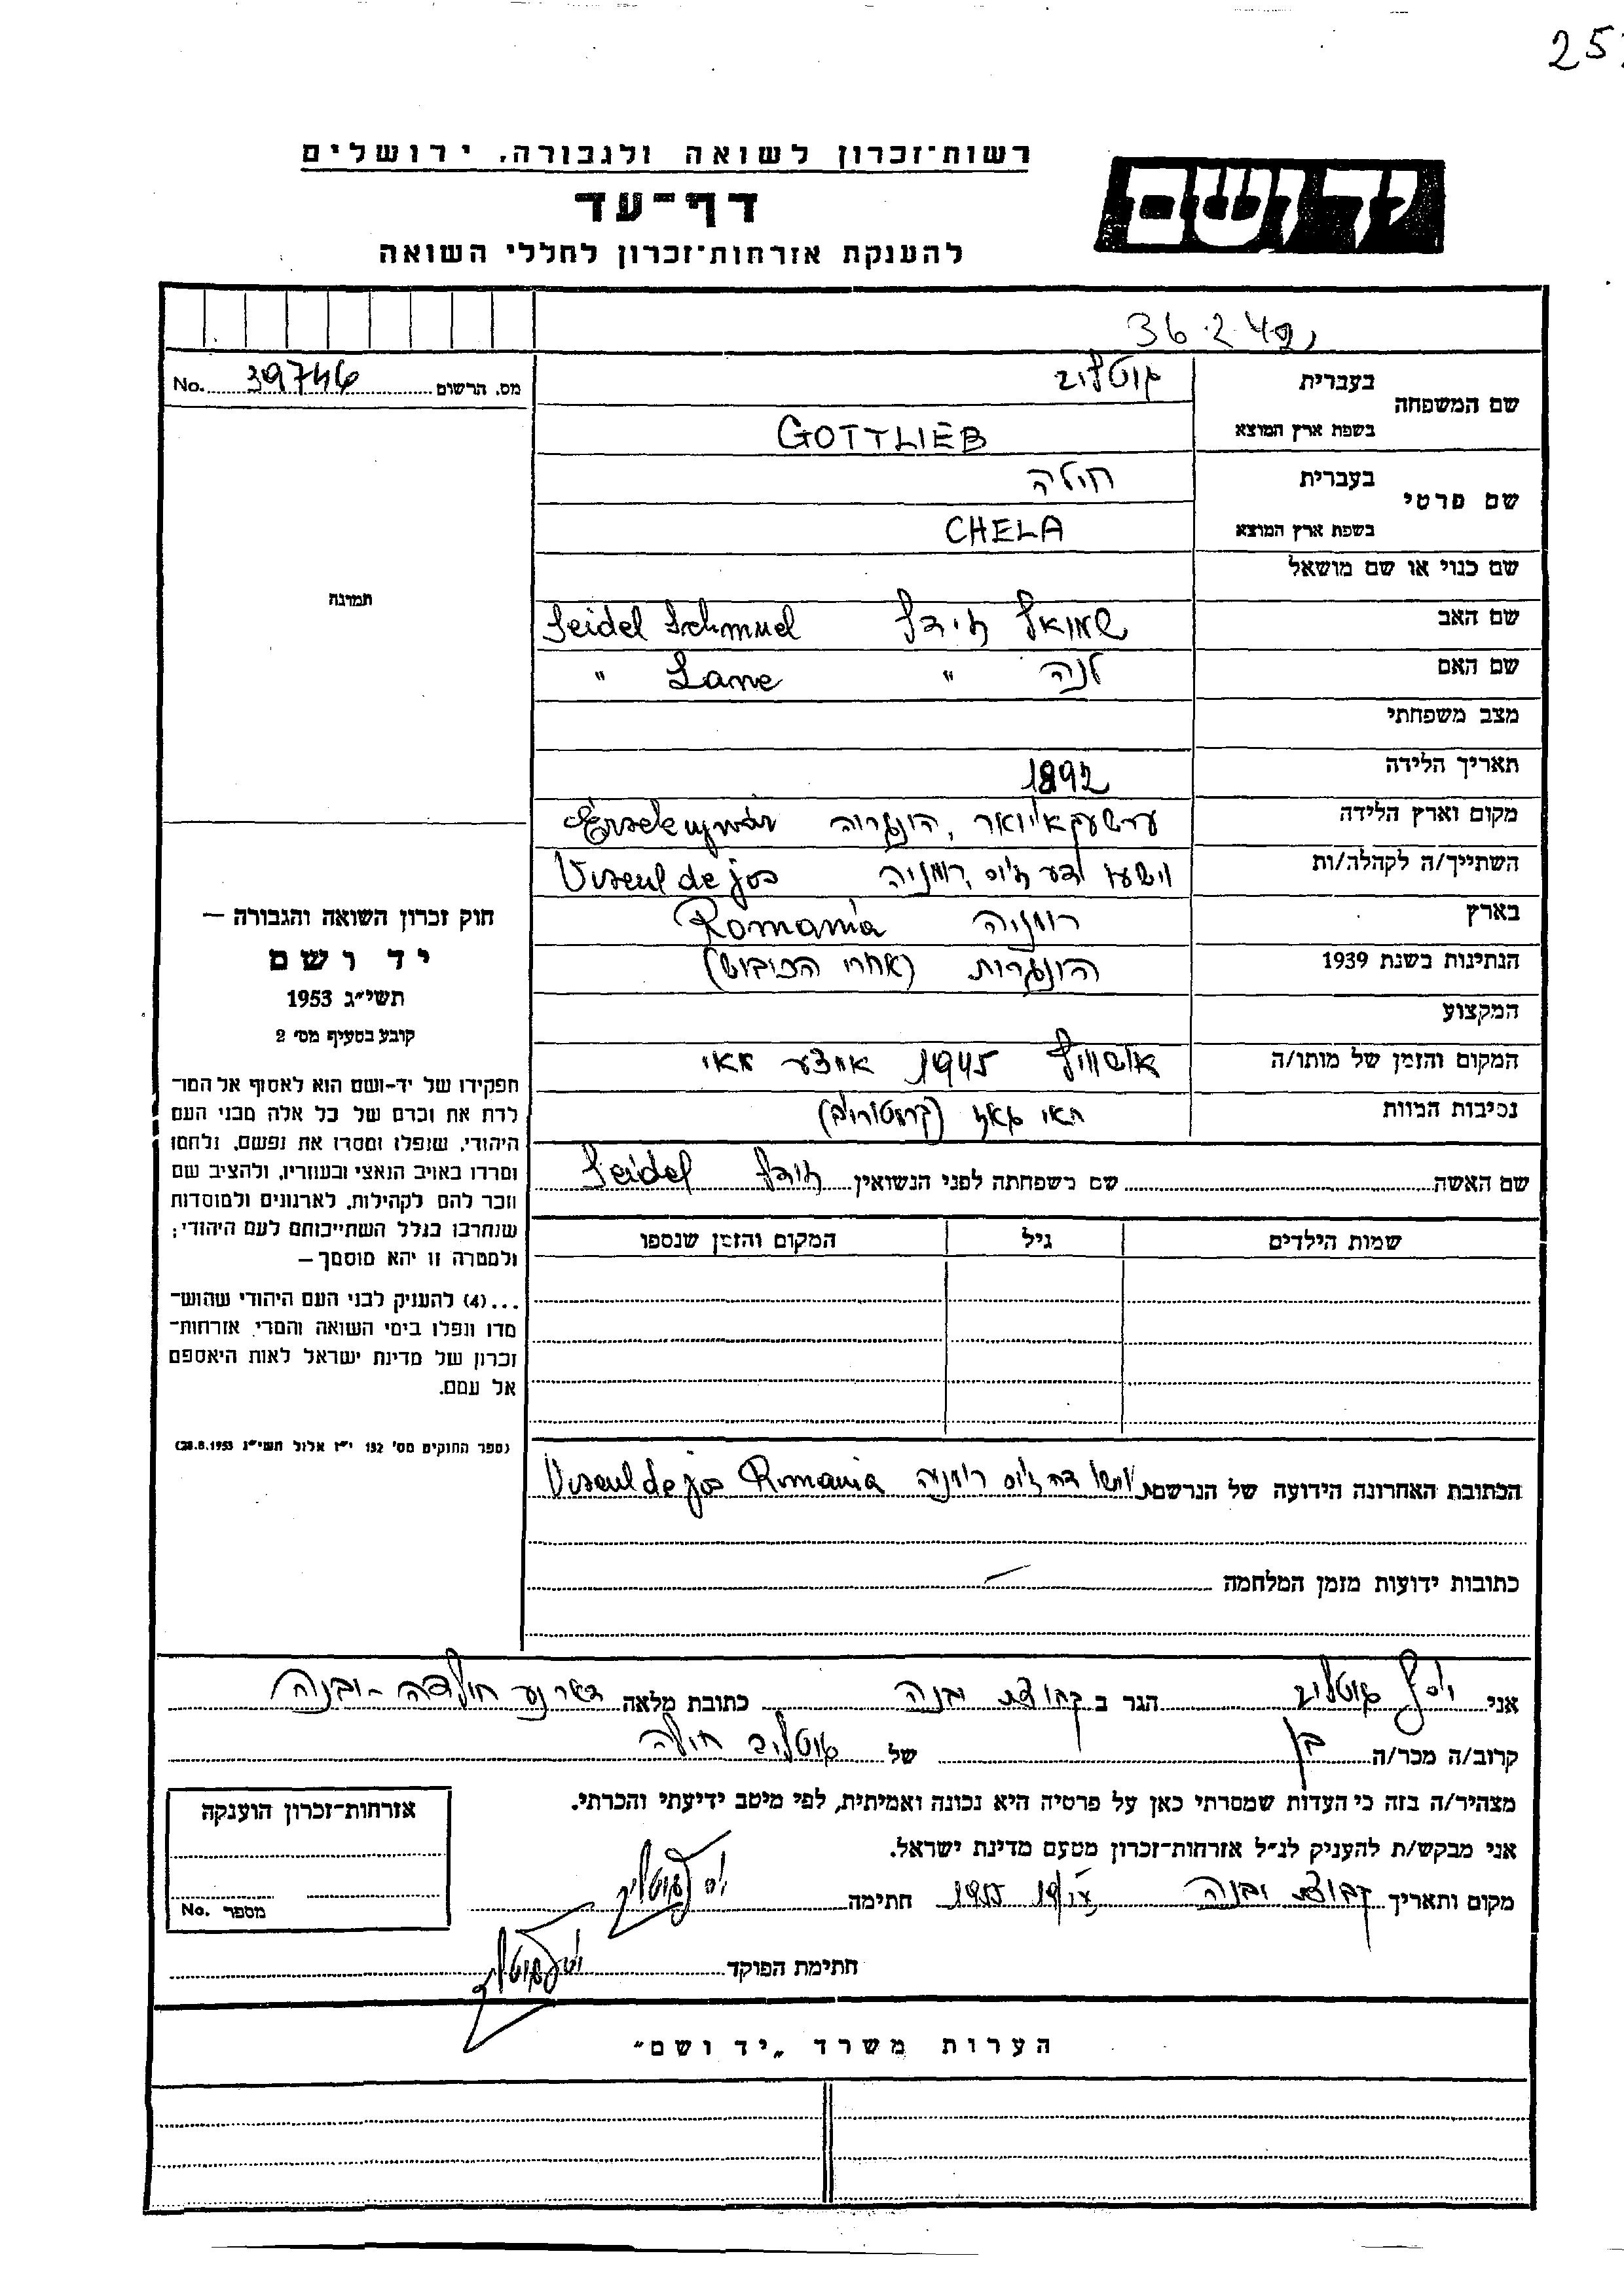 25
רשות־זכרון לשואה ולגבורה, ירושלים
יד ושם
דף־עד
להענקת אזרחות־זכרון לחללי השואה
מס. הרשום 39746 No.
שם המשפחה
בעברית גוטליב
בשפת ארץ המוצא GOTTLIEB
שם פרטי
בעברית חילה
בשפת ארץ המוצא CHELA
שם כנוי או שם מושאל
שם האב שמואל זידל Seidel Schmuel
שם האם לנה " Lane "
מצב משפחתי
תאריך הלידה 1892
מקום וארץ הלידה הונגריה Érsekujvár
השתייך/ה לקהלה/ות רומניה Viseul de jos
בארץ רומניה Romania
הנתינות בשנת 1939 הונגרית (אחרי הכיבוש)
המקצוע
המקום והזמן של מותו/ה אושוויץ 1945
נסיבות המוות תאי גאז
שם האשה שם משפחתה לפני הנשואין זידל Seidel
שמות הילדים גיל המקום והזמן שנספו
הכתובת האחרונה הידועה של הנרשם רומניה Viseul de jos Romania
כתובות ידועות מזמן המלחמה —
תמונה
חוק זכרון השואה והגבורה —
יד ושם
תשי״ג 1953
קובע בסעיף מס׳ 2
תפקידו של יד-ושם הוא לאסוף אל המו־
לדת את זכרם של כל אלה מבני העם
היהודי, שנפלו ומסרו את נפשם, נלחמו
ומרדו באויב הנאצי ובעוזריו, ולהציב שם
וזכר להם לקהילות, לארגונים ולמוסדות
שנחרבו בגלל השתייכותם לעם היהודי;
ולמטרה זו יהא מוסמך —
...(4) להעניק לבני העם היהודי שהוש־
מדו ונפלו בימי השואה והמרי אזרחות־
זכרון של מדינת ישראל לאות היאספם
אל עמם.
(ספר החוקים מס׳ 132 י״ז אלול תשי״ג 28.8.1953)
אני יוסף גוטליב הגר ב קבוצת יבנה כתובת מלאה
קרוב/ה מכר/ה בן של גוטליב חילה
מצהיר/ה בזה כי העדות שמסרתי כאן על פרטיה היא נכונה ואמיתית, לפי מיטב ידיעתי והכרתי.
אני מבקש/ת להעניק לנ״ל אזרחות־זכרון מטעם מדינת ישראל.
מקום ותאריך קבוצת יבנה 1955 חתימה
חתימת הפוקד
אזרחות־זכרון הוענקה
מספר No.
הערות משרד „יד ושם״